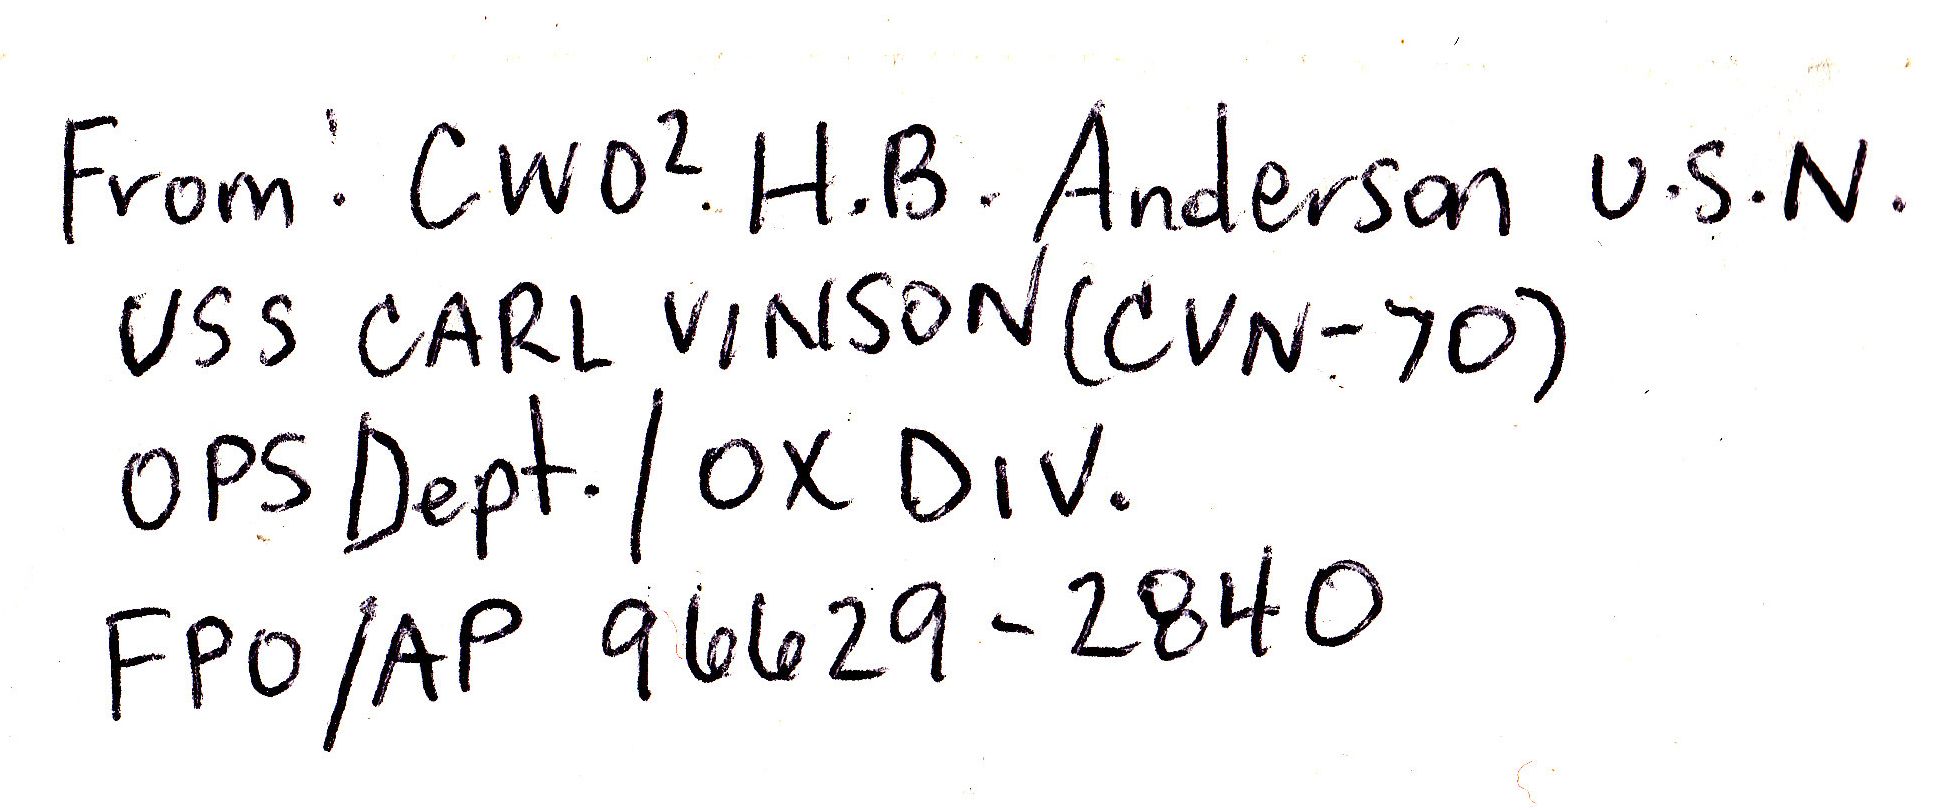 From: CWO². H.B. Anderson U.S.N.
USS CARL VINSON (CVN-70)
OPS Dept. / OX DIV.
FPO/AP 96629-2840